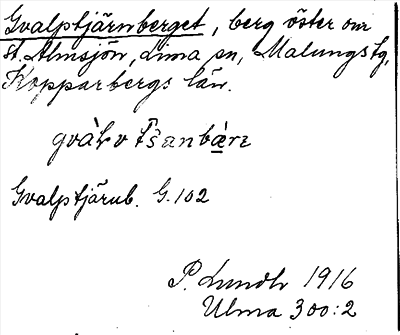 Gvalptjärnberget, berg öster om
St. Almsjön, Lima sn, Malungs tg,
Kopparbergs län.
Gvalptjärnb. G.102
P. Lundh 1916
Ulma 300:2